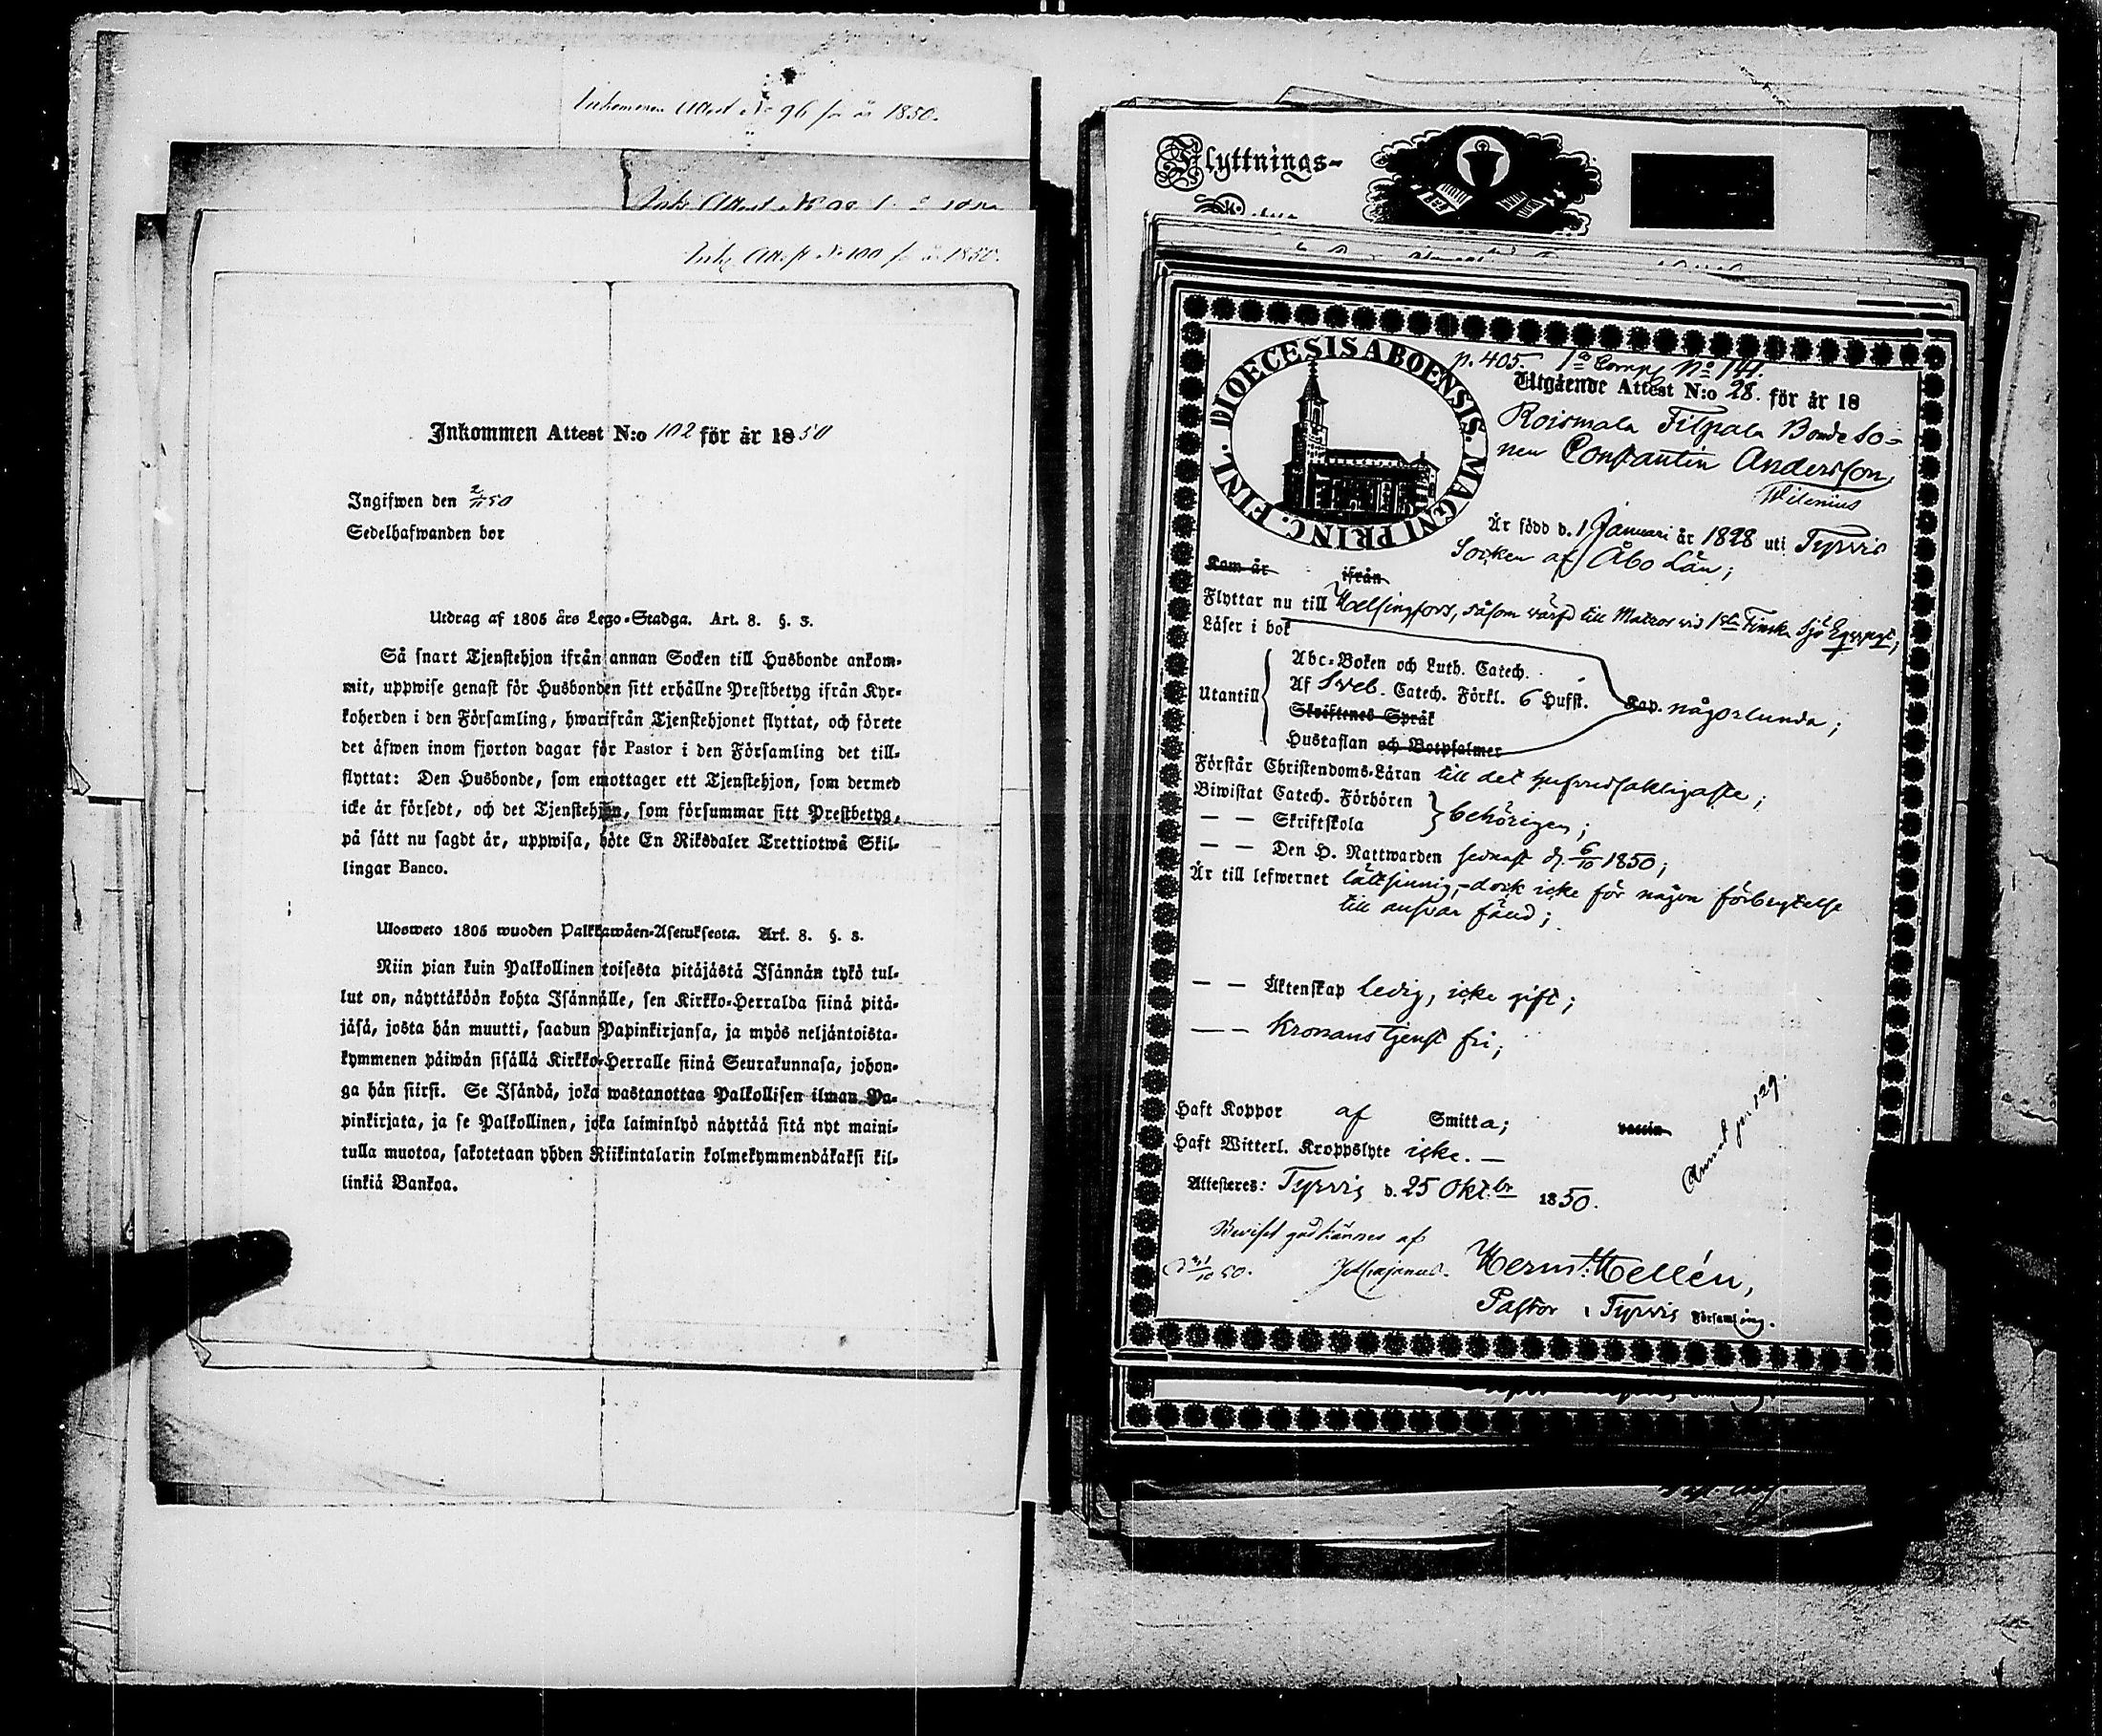 Inkommen Attest No 96 för år 1850.
Ink. Attest No
Ink. Attest No 100 för år 1850.
Inkommen Attest N:o 102 för år 1850
Ingifwen den 2/11 50
Sedelhafwanden bor
Utdrag af 1805 års Lego-Stadga. Art. 8. §. 3.
Så snart Tjenstehjon ifrån annan Socken till Husbonde ankom-
mit, uppwise genast för Husbonden sitt erhållne Prestbetyg ifrån Kyr-
koherden i den Församling, hwarifrån Tjenstehjonet flyttat, och förete
det äfwen inom fjorton dagar för Pastor i den Församling det till-
flyttat: Den Husbonde, som emottager ett Tjenstehjon, som dermed
icke är försedt, och det Tjenstehjon, som försummar sitt Prestbetyg,
på sätt nu sagdt är, uppwisa, böte En Riksdaler Trettiotwå Skil-
lingar Banco.
Ulosweto 1805 wuoden Palkkawäen-Asetuksesta. Art. 8. §. 3.
Niin pian kuin Palkollinen toisesta pitäjästä Isännän tykö tul-
lut on, näyttäköön kohta Isännälle, sen Kirkko-Herralda siinä pitä-
jäsä, josta hän muutti, saadun Papinkirjansa, ja myös neljäntoista-
kymmenen päiwän sisällä Kirkko-Herralle siinä Seurakunnasa, johon-
ga hän siirsi. Se Isändä, joka wastanottaa Palkollisen ilman Pa-
pinkirjata, ja se Palkollinen, joka laiminlyö näyttää sitä nyt maini-
tulla muotoa, sakotetaan yhden Riikintalarin kolmekymmendäkaksi kil-
linkiä Bankoa.
Flyttnings-
DIOECESIS ABOENSIS. MAGNI PRINC. FINL.
p. 405. 1a Comp. No 141.
Utgående Attest N:o 28. för år 18
Roismala Filpala Bondeso-
nen Constantin Andersson,
Wilenius
Är född d. 1 Januari år 1828 uti Tyrvis
Socken af Åbo Län;
Kom år ifrån
Flyttar nu till Helsingfors, såsom värfd till Matros vid 1sta Finska Sjö Equipaget;
Läser i bok
Utantill
Abc-Boken och Luth. Catech.
Af Sveb. Catech. Förkl. 6 Hufst. Kap. någorlunda;
Skriftenes Språk
Hustaflan och Botpsalmer
Förstår Christendoms-Läran till det hufvudsakligaste;
Biwistat Catech. Förhören
— — Skriftskola behörigen;
— — Den H. Nattwarden sednast d. 6/10 1850;
Är till lefwernet lättsinnig, dock icke för någon förbrytelse
till ansvar fänd;
— — Äktenskap ledig, icke gift;
— — Kronans tjenst fri;
Haft Koppor af Smitta; vaccin
Haft Witterl. Kroppslyte icke. —
Annot. pag 129.
Attesteres: Tyrvis d. 25 Oktbr 1850.
Beviset godkännes af
Herm. Hellén,
Pastor i Tyrvis Församling.